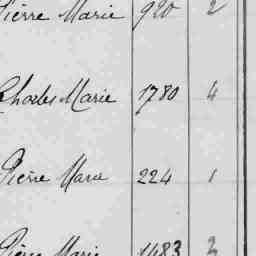 Pierre Marie 920 2
Charles Marie 1780 4
Pierre Marie 224 1
Pierre Marie 1483 3